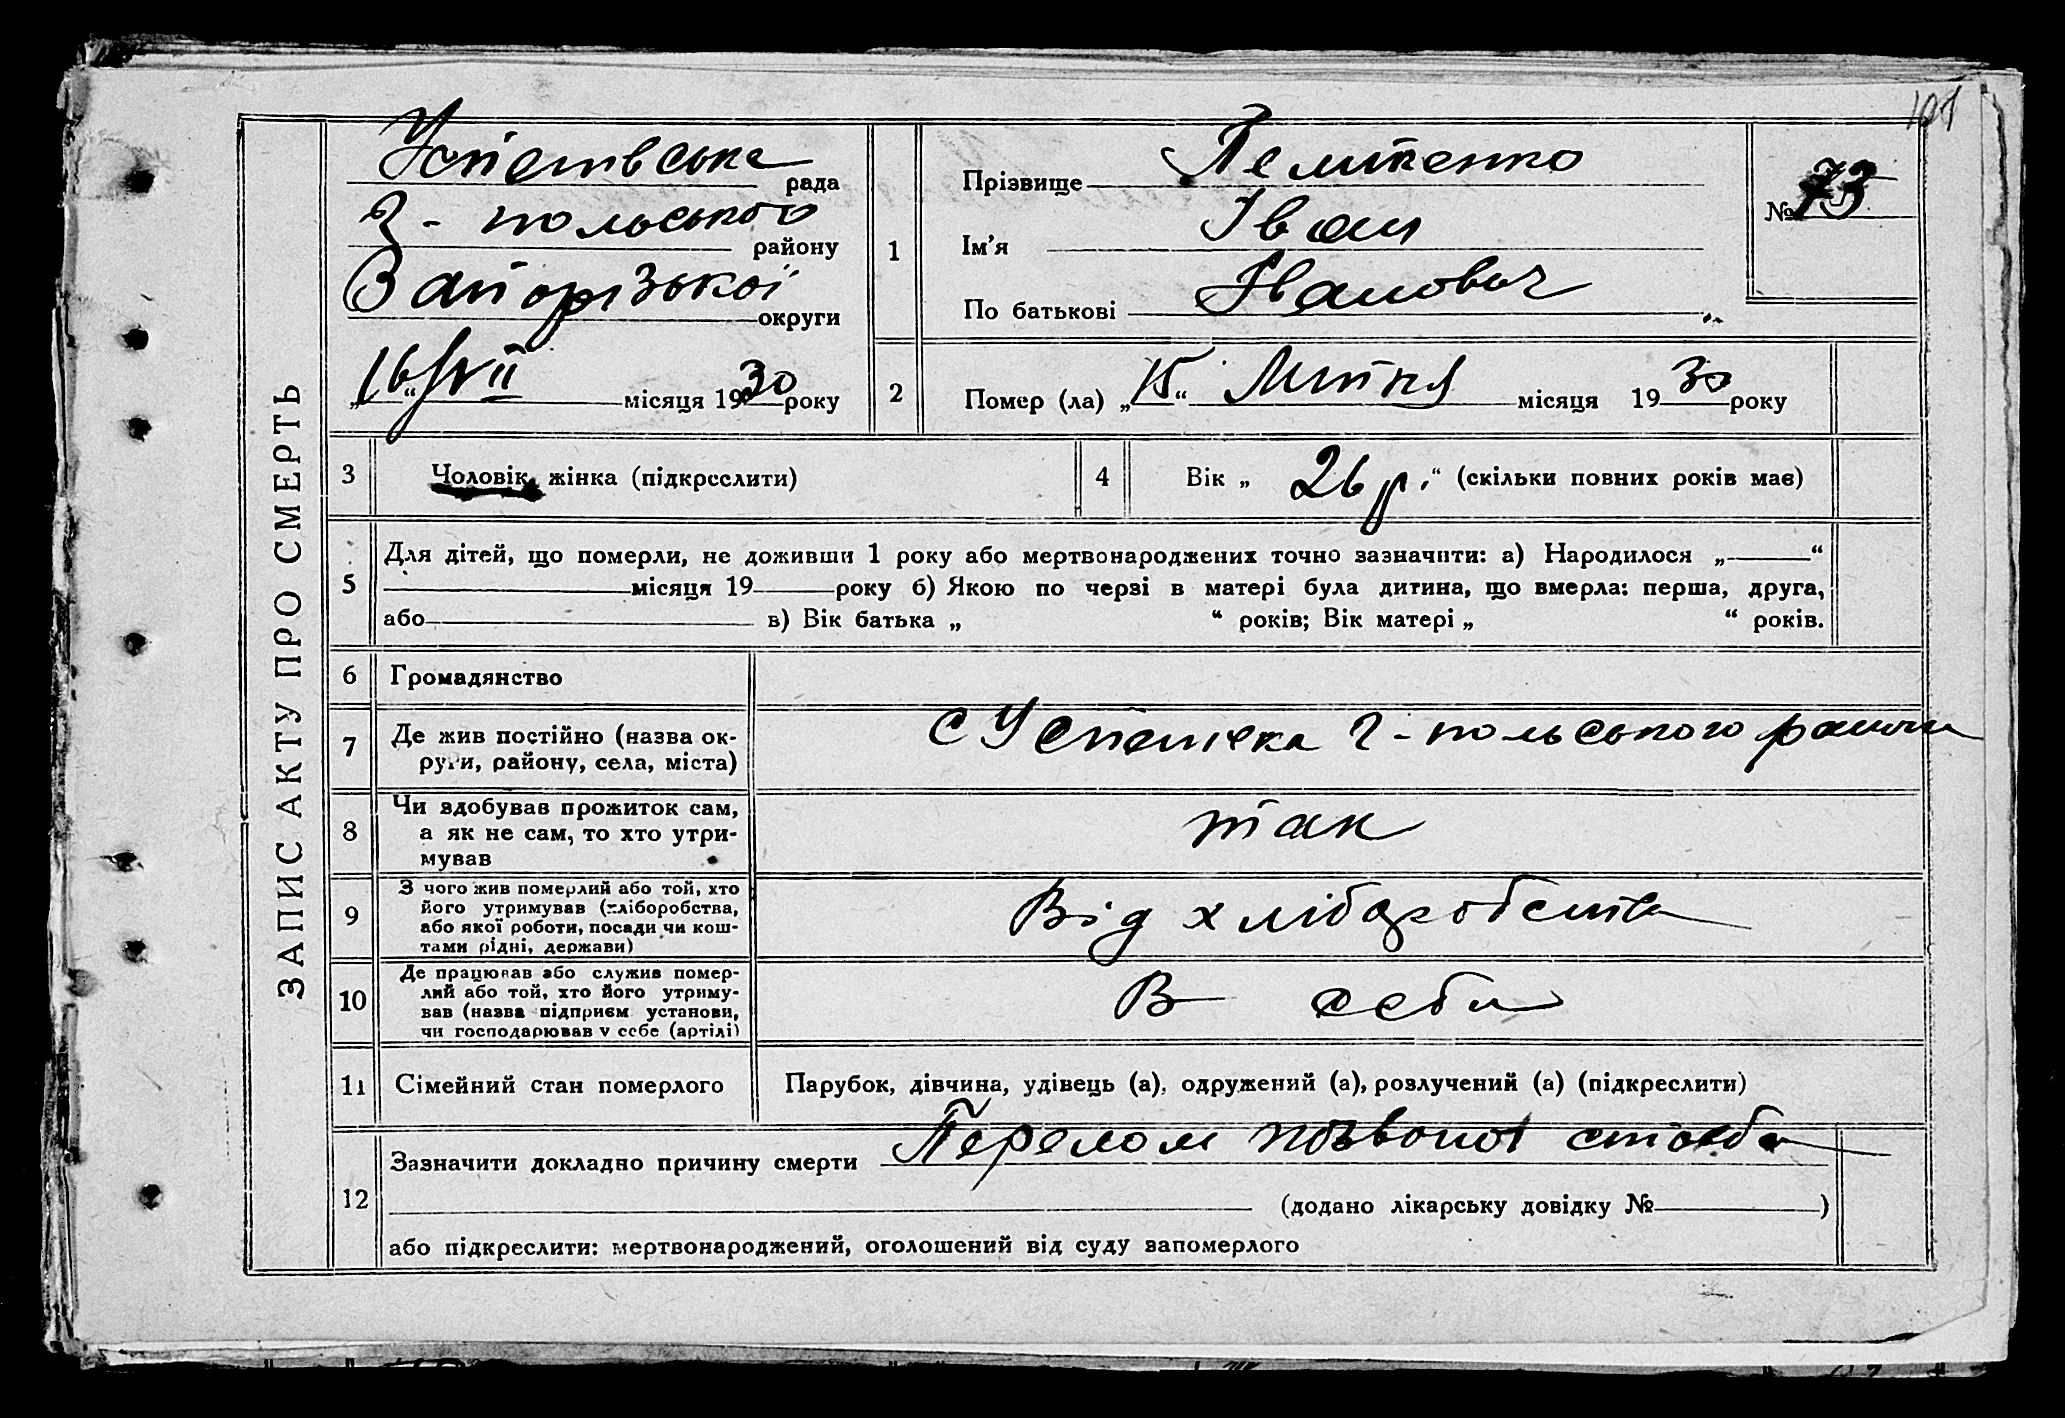 101
ЗАПИС АКТУ ПРО СМЕРТЬ
Успенівська рада
Г-польського району
Запорізької округи
„16“ VII місяця 1930 року
1
Прізвище
Ім’я Іван
По батькові Іванович
№ 73
2
Помер (ла) „15“ Липня місяця 1930 року
3
Чоловік, жінка (підкреслити)
4
Вік „ 26 р. “ (скільки повних років має)
5
Для дітей, що померли, не доживши 1 року або мертвонароджених точно зазначити: а) Народилося „ “
місяця 19 року б) Якою по черзі в матері була дитина, що вмерла: перша, друга,
або в) Вік батька „ “ років; Вік матері „ “ років.
6
Громадянство
7
Де жив постійно (назва ок-
руги, району, села, міста)
С Успенівка Г-польського району
8
Чи здобував прожиток сам,
а як не сам, то хто утри-
мував
так
9
З чого жив померлий або той, хто
його утримував (хліборобства,
або якої роботи, посади чи кош-
тами рідні, держави)
Від хліборобства
10
Де працював або служив помер-
лий або той, хто його утриму-
вав (назва підприєм установи,
чи господарював у себе (артілі)
В себе
11
Сімейний стан померлого
Парубок, дівчина, удівець (а), одружений (а), розлучений (а) (підкреслити)
12
Зазначити докладно причину смерти Перелом позвоноч столба
(додано лікарську довідку № )
або підкреслити: мертвонароджений, оголошений від суду запомерлого